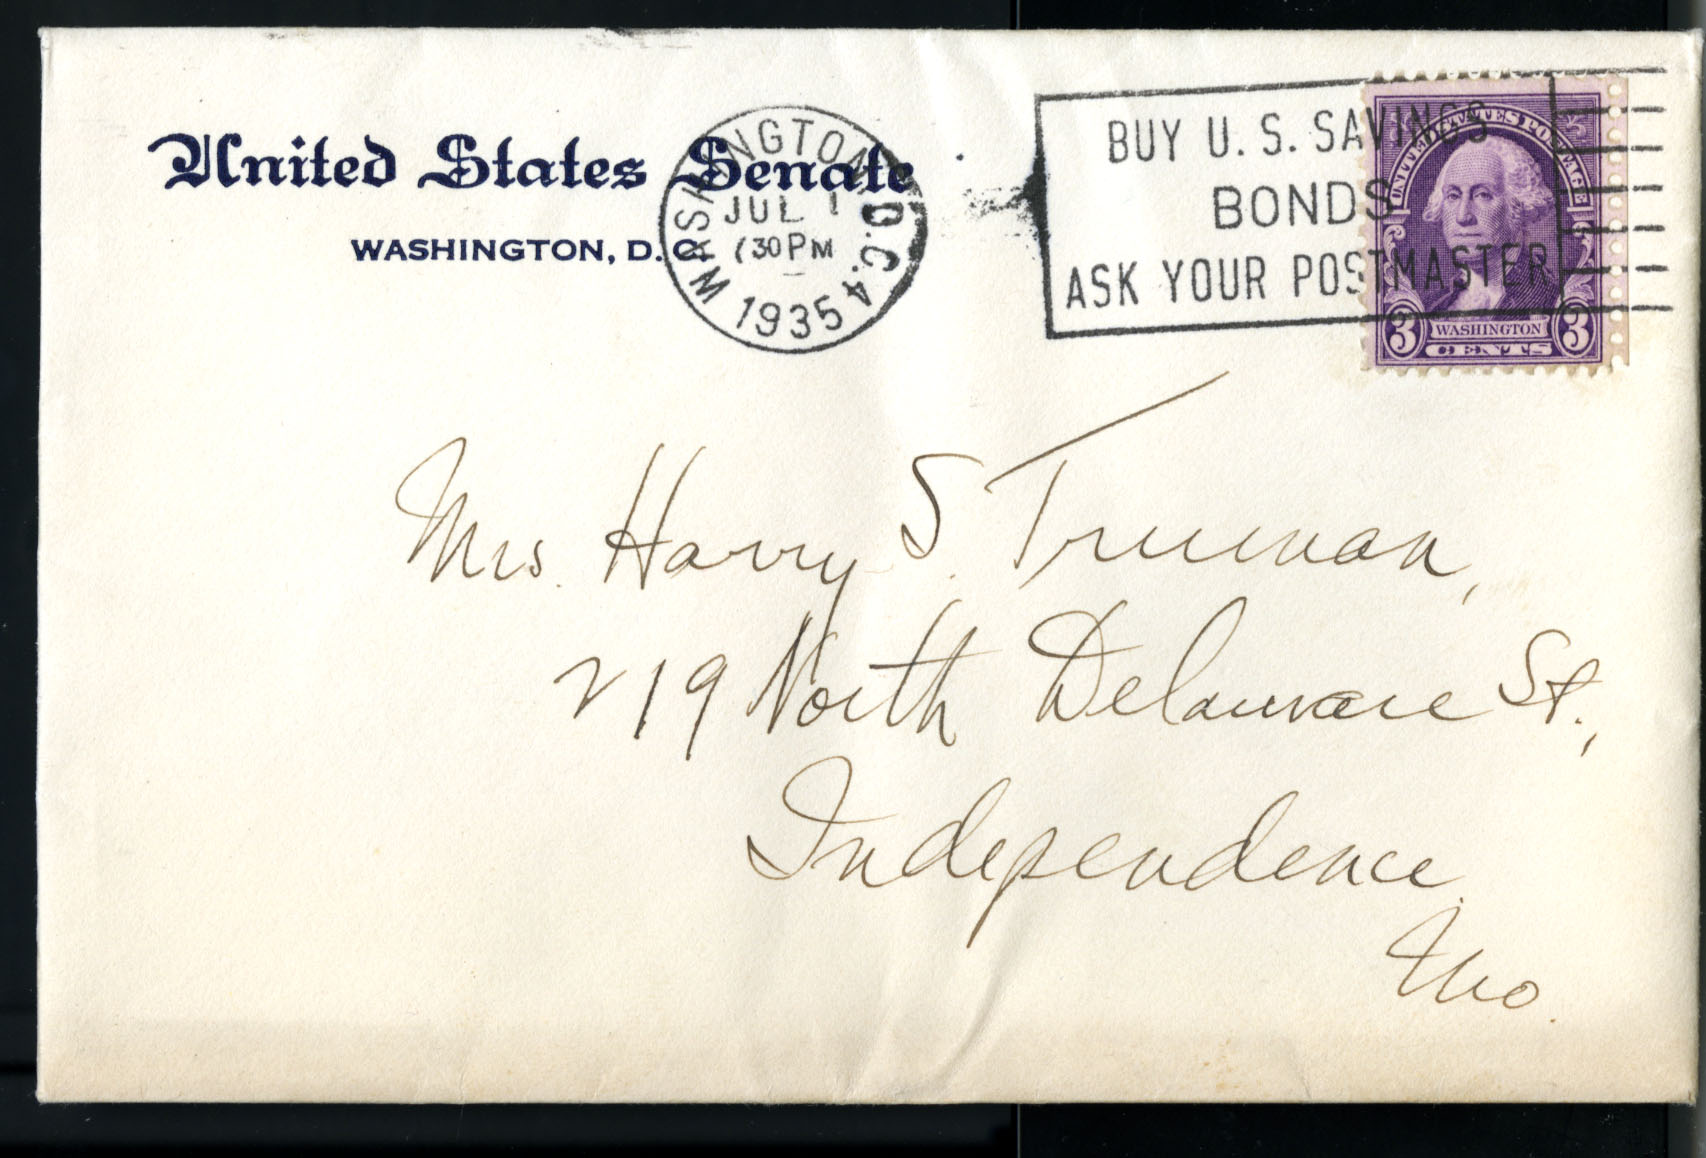 United States Senate
WASHINGTON, D. C.
WASHINGTON, D.C. 4
JUL 1
730 PM
1935
BUY U. S. SAVINGS
BONDS
ASK YOUR POSTMASTER
UNITED STATES POSTAGE
3 WASHINGTON 3
CENTS
Mrs. Harry S. Truman,
219 North Delaware St.,
Independence
Mo.